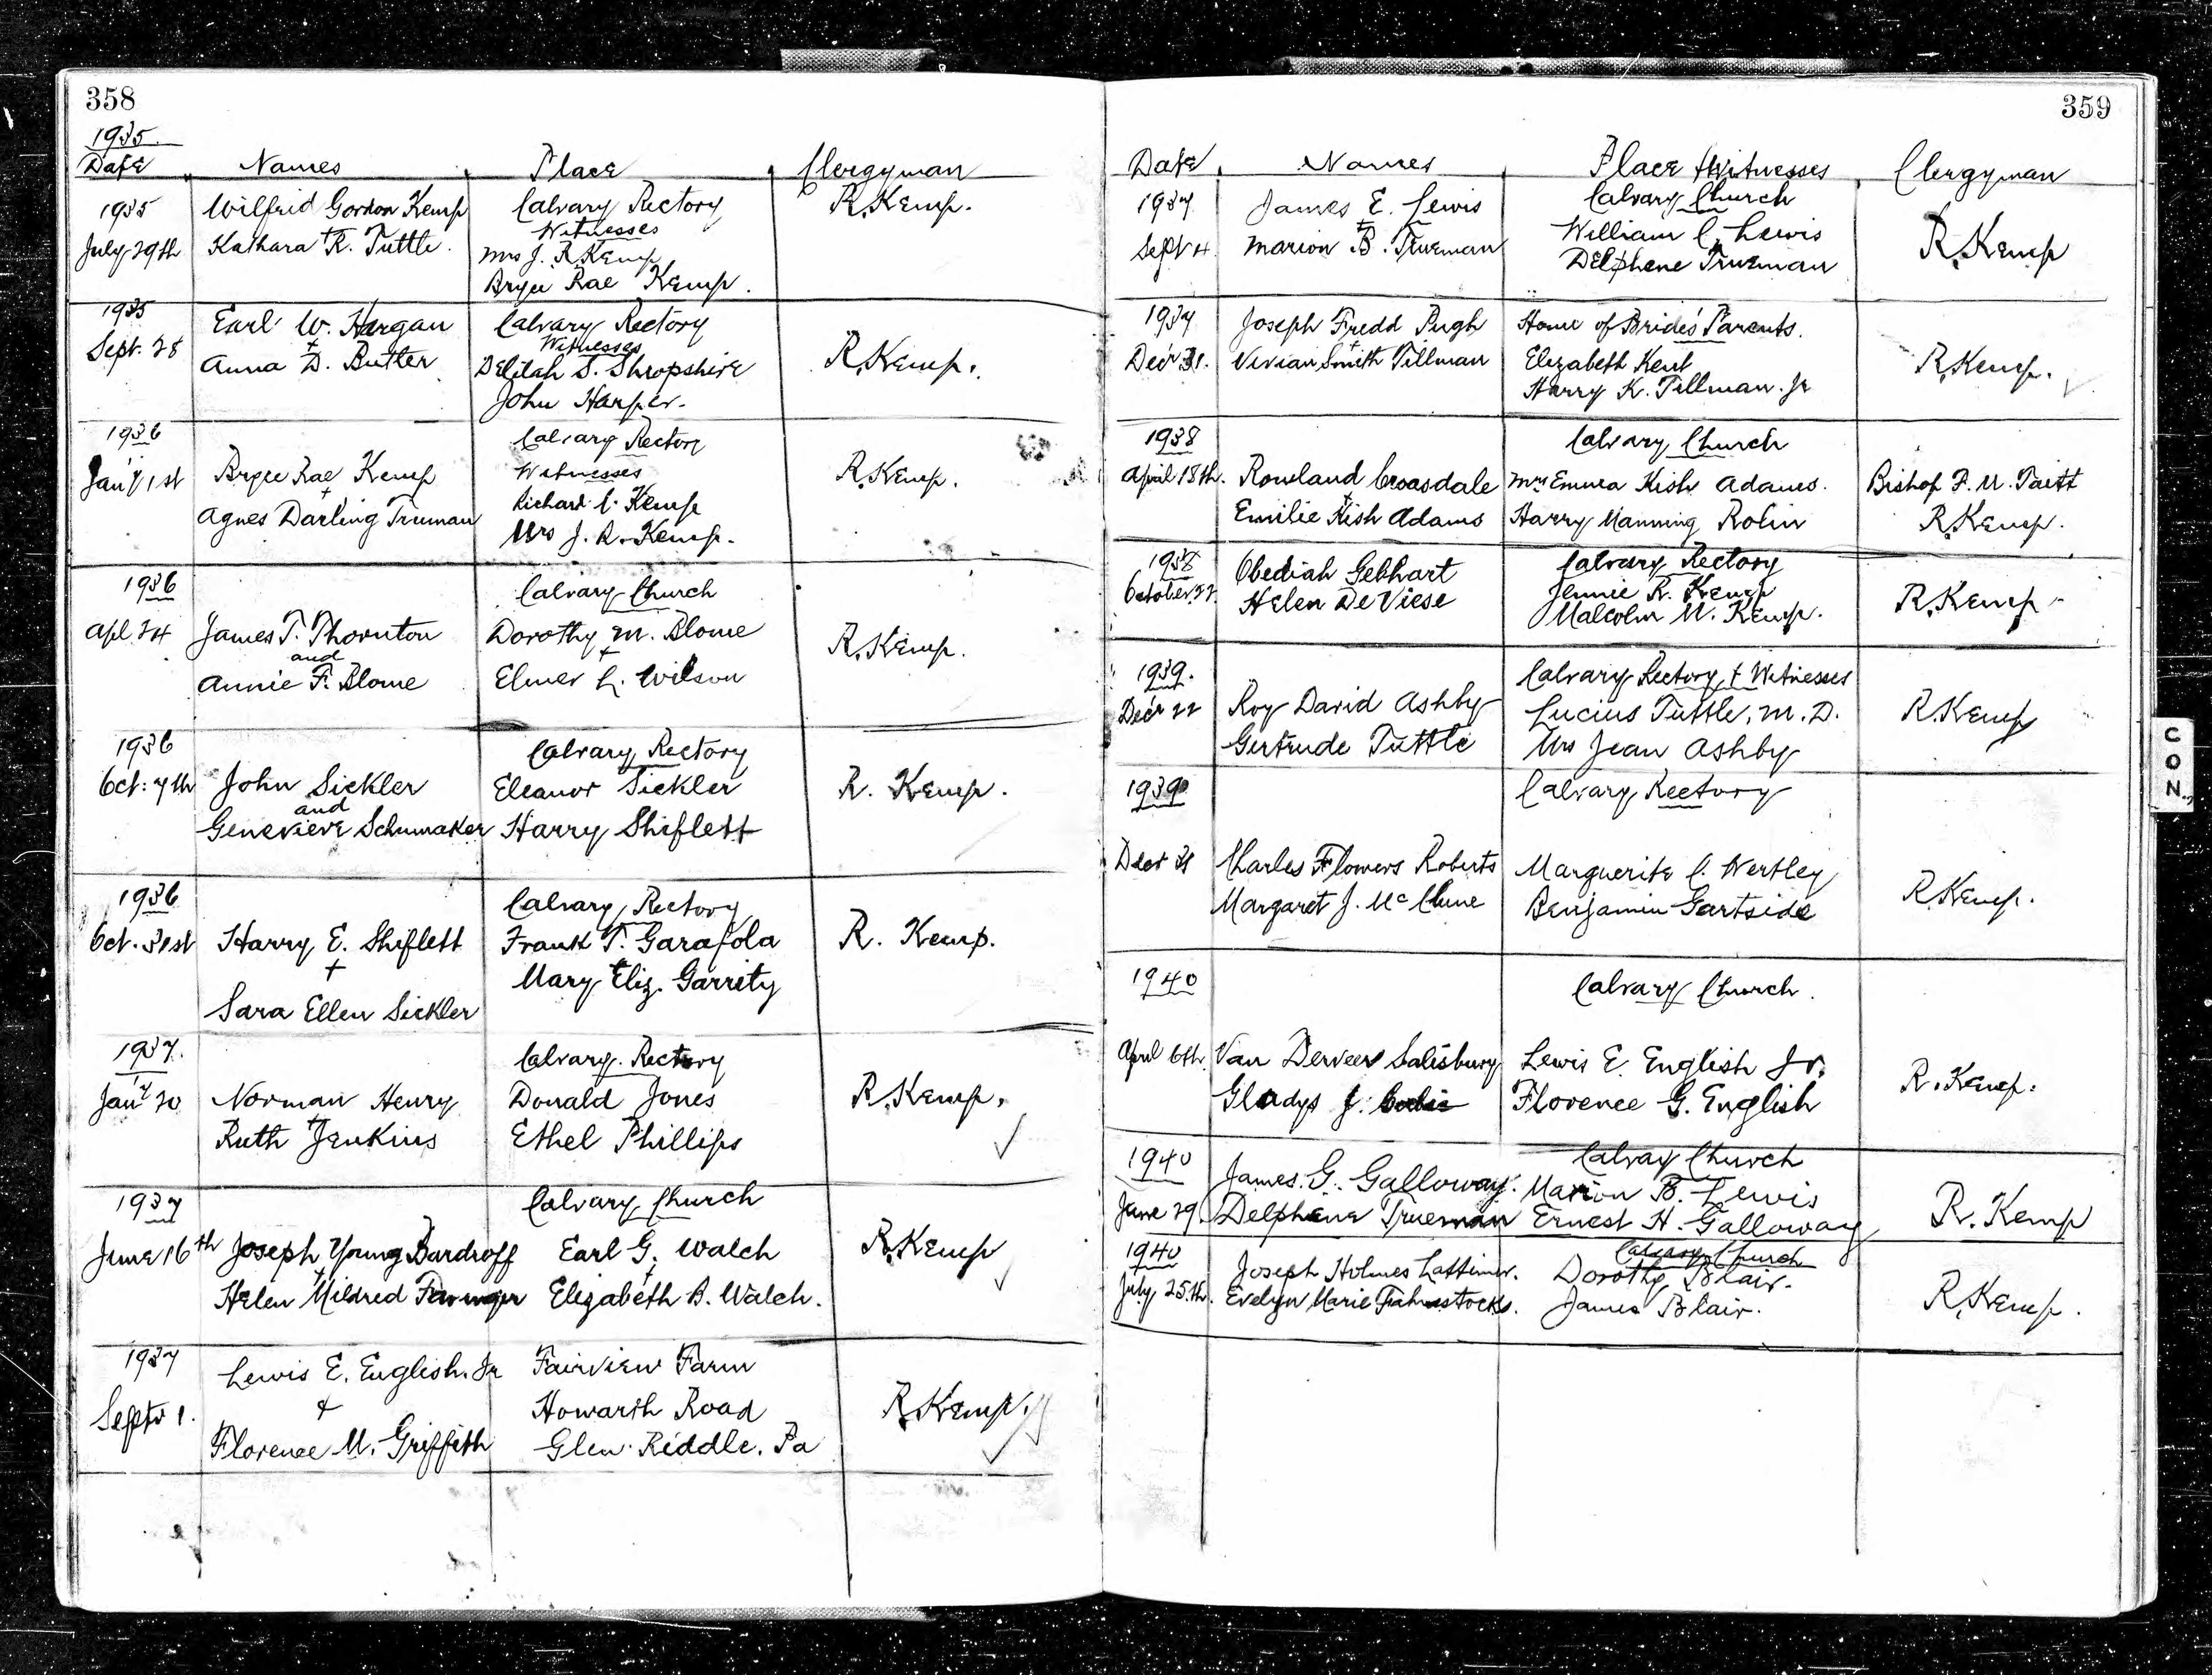 358
1935.
Date Names Place Clergyman
1935 Wilfrid Gordon Kemp Calvary Rectory R. Kemp.
+ Witnesses
July 29th Kathara R. Tuttle. Mrs J. R. Kemp
Bryce Rae Kemp.
1935 Earl W. Hargan Calvary Rectory
+ Witnesses
Sept. 28 Anna D. Butler Delilah S. Shropshire R. Kemp.
John Harper.
1936 Calvary Rectory
Jan'y 1st Bryce Rae Kemp Witnesses R. Kemp.
+ Richard C. Kemp
Agnes Darling Truman Mrs J. R. Kemp.
1936 Calvary Church
Apl 24 James T. Thornton Dorothy M. Blome R. Kemp.
and +
Annie F. Blome Elmer L. Wilson
1936 Calvary Rectory
Oct: 7th John Sickler Eleanor Sickler R. Kemp.
and
Genevieve Schumaker Harry Shiflett
1936 Calvary Rectory
Oct. 31st Harry E. Shiflett Frank T. Garafola R. Kemp.
+ Mary Eliz. Garrity
Sara Ellen Sickler
1937. Calvary Rectory
Jan'y 20 Norman Henry Donald Jones R. Kemp.
+
Ruth Jenkins Ethel Phillips
1937 Calvary Church
June 16th Joseph Young Dardroff Earl G. Walch R. Kemp
+ +
Helen Mildred Elizabeth B. Walch.
1937 Lewis E. English. Jr Fairview Farm
Septr 1. + Howarth Road R. Kemp.
Florence M. Griffith Glen Riddle. Pa
359
Date Names Place + Witnesses Clergyman
1937 James E. Lewis Calvary Church
+ William C. Lewis R. Kemp
Sept 4 Marion B. Trueman Delphene Trueman
1937 Joseph Fredd Pugh Home of Bride's Parents.
+
Decr 31. Vivian Smith Tillman Elizabeth Kent R. Kemp.
Harry K. Tillman. Jr
1938 Calvary Church
April 18th. Rowland Croasdale Mrs Emma Kish Adams. Bishop F. M. Taitt
+
Emilie Kish Adams Harry Manning Rolin R. Kemp.
1938 Obediah Gebhart Calvary Rectory
October 22 Helen DeViese Jennie R. Kemp R. Kemp
Malcolm M. Kemp.
1939. Calvary Rectory + Witnesses
Decr 22 Roy David Ashby Lucius Tuttle, M. D. R. Kemp
Gertrude Tuttle Mrs Jean Ashby
1939 Calvary Rectory
Decr 31 Charles Flowers Roberts Marguerite C. Wertley R. Kemp.
Margaret J. McClune Benjamin Gartside
1940 Calvary Church.
April 6th Van Derveer Salisbury Lewis E. English Jr. R. Kemp.
Gladys J. Florence G. English
1940 Calvay Church
James. G. Galloway. Marion B. Lewis R. Kemp
June 29. Delphene Trueman Ernest H. Galloway
1940 Calvary Church
Joseph Holmes Lattimer. Dorothy Blair. R. Kemp.
July 25th. Evelyn Marie Fahnestocks. James Blair.
CON.